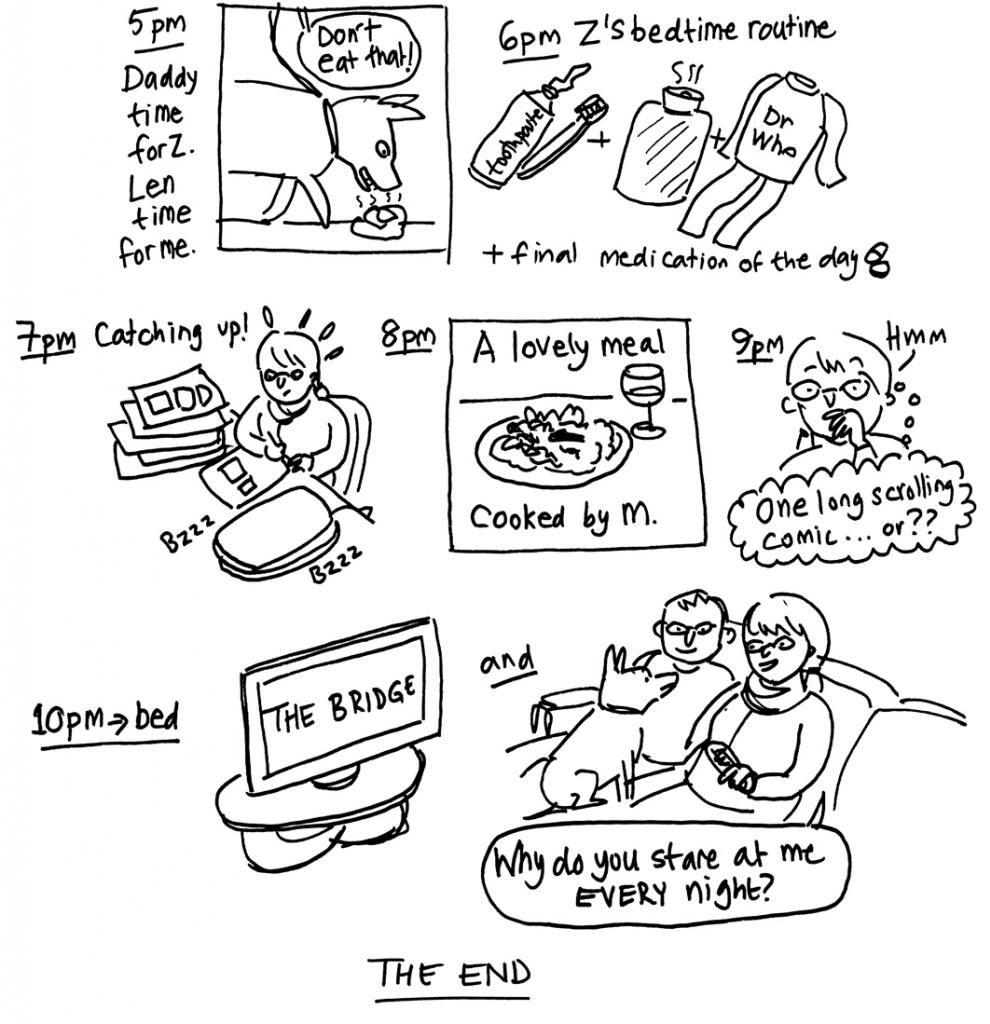 5pm
Daddy
time
for Z.
Len
time
for me.
Don't
eat that!
6pm Z's bedtime routine
toothpaste
+
+
Dr
Who
+ final medication of the day
7pm Catching up!
Bzzz
Bzzz
8pm
A lovely meal
Cooked by M.
9pm
Hmm
One long scrolling
comic... or??
10pm → bed
THE BRIDGE
and
Why do you stare at me
EVERY night?
THE END